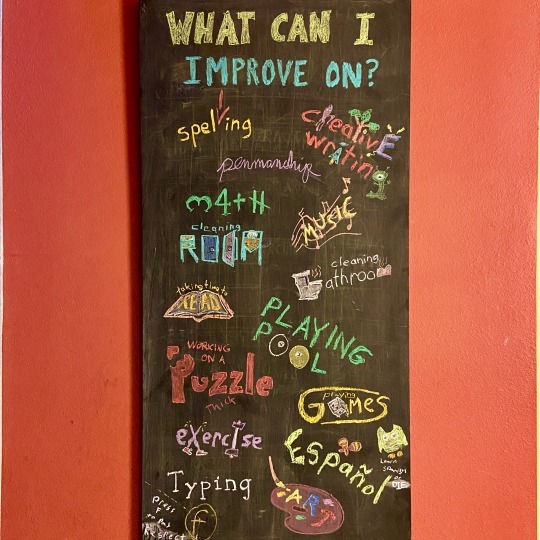 WHAT CAN I
IMPROVE ON?
spelling
creative
writing
penmanship
m4+H
MUSIC
cleaning
ROOM
cleaning
Bathroom
taking time to
READ
PLAYING
POOL
WORKING
ON A
Puzzle
Thick
playing
GAMES
exercise
Español
Learn
Spanish
or
DIE
Typing
ART
press
F
to Pay
Respect
f